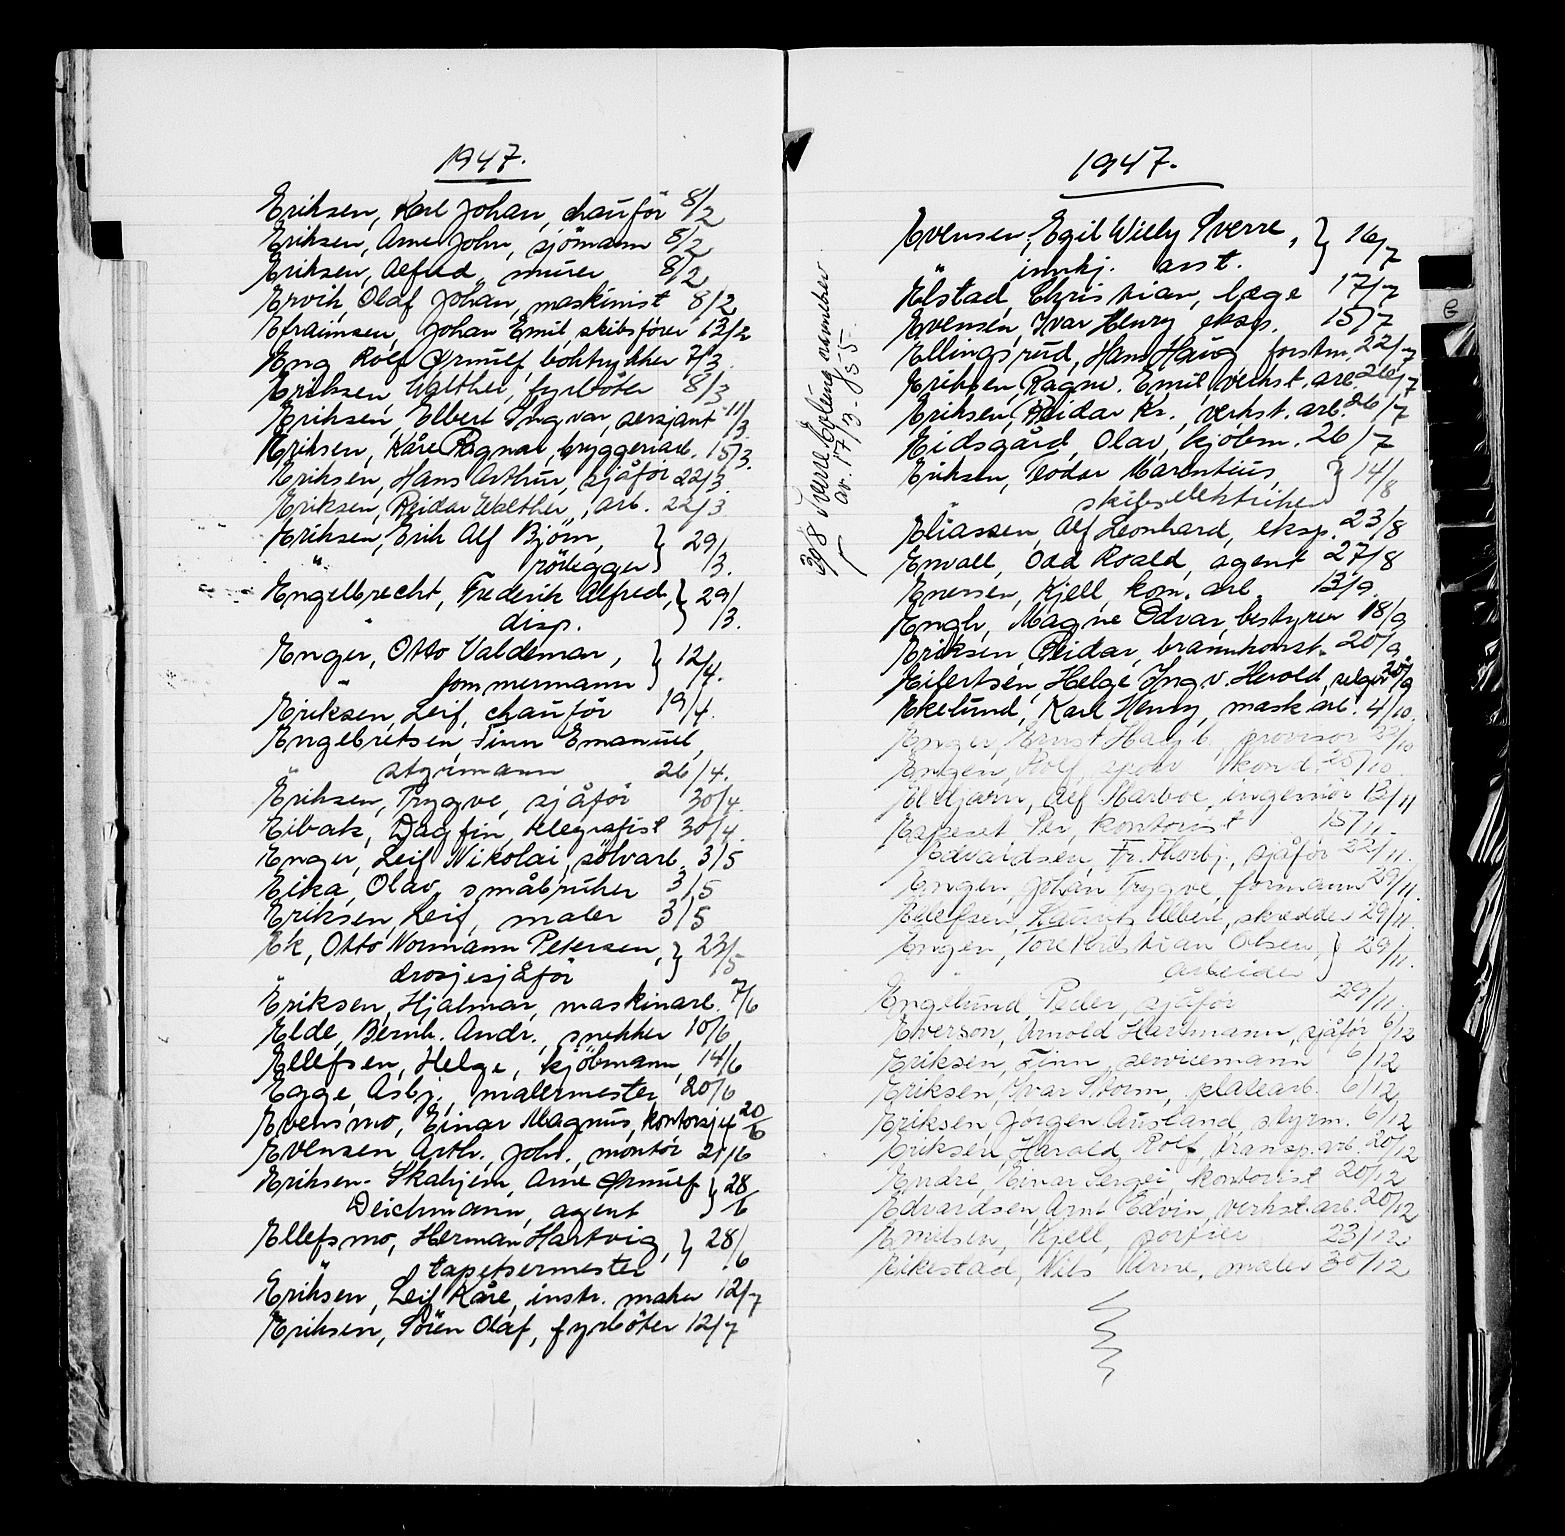 1947.
Eriksen, Karl Johan, chauför 8/2
Eriksen, Arne John, sjömann 8/2
Eriksen, Alfred, murer 8/2
Ervik, Olaf Johan, maskinist 8/2
Efraimsen, Johan Emil, skibsförer 13/2
Eng Rolf Ørnulf, boktrykker 7/3.
Eriksen, Walther, fyrböter 8/3
Eriksen, Elbert Ingvar, sersjant 11/3
Eriksen, Kåre Ragnar, bryggeriarb. 15/3.
Eriksen, Hans Arthur, sjåför 22/3.
Eriksen, Reidar Walther, arb. 22/3
Eriksen, Erik Alf Björn, } 29/3.
" rörlegger
Engelbrecht, Frederik Alfred, } 29/3.
" disp.
Enger, Otto Valdemar, } 12/4.
" tömmermann
Eriksen, Leif, chauför 19/4.
Engebretsen Finn Emanuel,
" styrmann 26/4.
Eriksen, Trygve, sjåför 30/4.
Eibak, Dagfin, telegrafist 30/4.
Enger, Leif Nikolai, sölvarb. 3/5
Eika, Olav, småbruker 3/5
Eriksen, Leif, maler 3/5
Ek, Otto Normann Petersen, } 23/5
" drosjesjåför
Eriksen, Hjalmar, maskinarb. 7/6
Elde, Bernh. Andr., snekker 10/6
Ellefsen, Helge, kjöbmann, 14/6
Egge, Asbj., malermester 20/6
Evensmo, Einar Magnus, kontorsjef 20/6
Evensen Arth. Joh., montör 21/6
Eriksen-Skahjem, Arne Ørnulf } 28/6
Deichmann, agent
Ellefsmo, Herman Hartvig, } 28/6
" tapetsermester
Eriksen, Leif Kåre, instr. maker 12/7
Eriksen, Sören Olaf, fyrböter 12/7
1947.
Evensen, Egil Willy Sverre, } 16/7
" innkj. ass.
Elstad, Christian, læge 17/7
Evensen, Ivar Henry, eksp. 15/7
Ellingsrud, Hans Haug, forstm. 22/7
Eriksen, Ragnv. Emil, verkst. arb. 26/7
Eriksen, Reidar Kr., verkst. arb. 26/7
Eidsgård, Olav, kjöbm. 26/7
Eriksen, Teodor Marentius, } 14/8
skibselektriker
30/8 Sverre
av. 17/3-55.
Eliassen, Alf Leonhard, eksp. 23/8
Envall, Odd Roald, agent 27/8
Enersen, Kjell, kom. arb. 13/9.
Engh, Magne Odvar, bestyrer 18/9
Eriksen, Reidar, brannkonst. 20/9.
Eilertsen, Helge Ingv. Herold, selger 20/9
Ekelund, Karl Henry, mask arb. 4/10.
Enger, Ernst Hagb. provisor 22/10
Engen, Rolf, spor kond. 25/10.
Alf ingeniör 13/11
Per, kontorist 15/11.
Edvardsen, Fr. Thorbj., sjåför 22/11.
Engen, Johan Trygve, formann 29/11.
Ellefsen, Albert, skredder 29/11.
Engen, Tore Kristian Olsen, } 29/11.
" arbeider
Englund, Peder, sjåför 29/11.
Everson, Arnold Hermann, sjåför 6/12
Eriksen, Finn, servicemann 6/12
Eriksen, Ivar Storm, platearb. 6/12,
Eriksen, Jørgen Ausland, styrm. 6/12
Eriksen, Harald Rolf, transp. arb. 20/12
Endre, Einar Sergei, kontorist 20/12
Edvardsen, Arnt Edvin, verkst. arb. 20/12
Emilsen, Kjell, portier 23/12
Eikestad, Nils Arne, maler 30/12